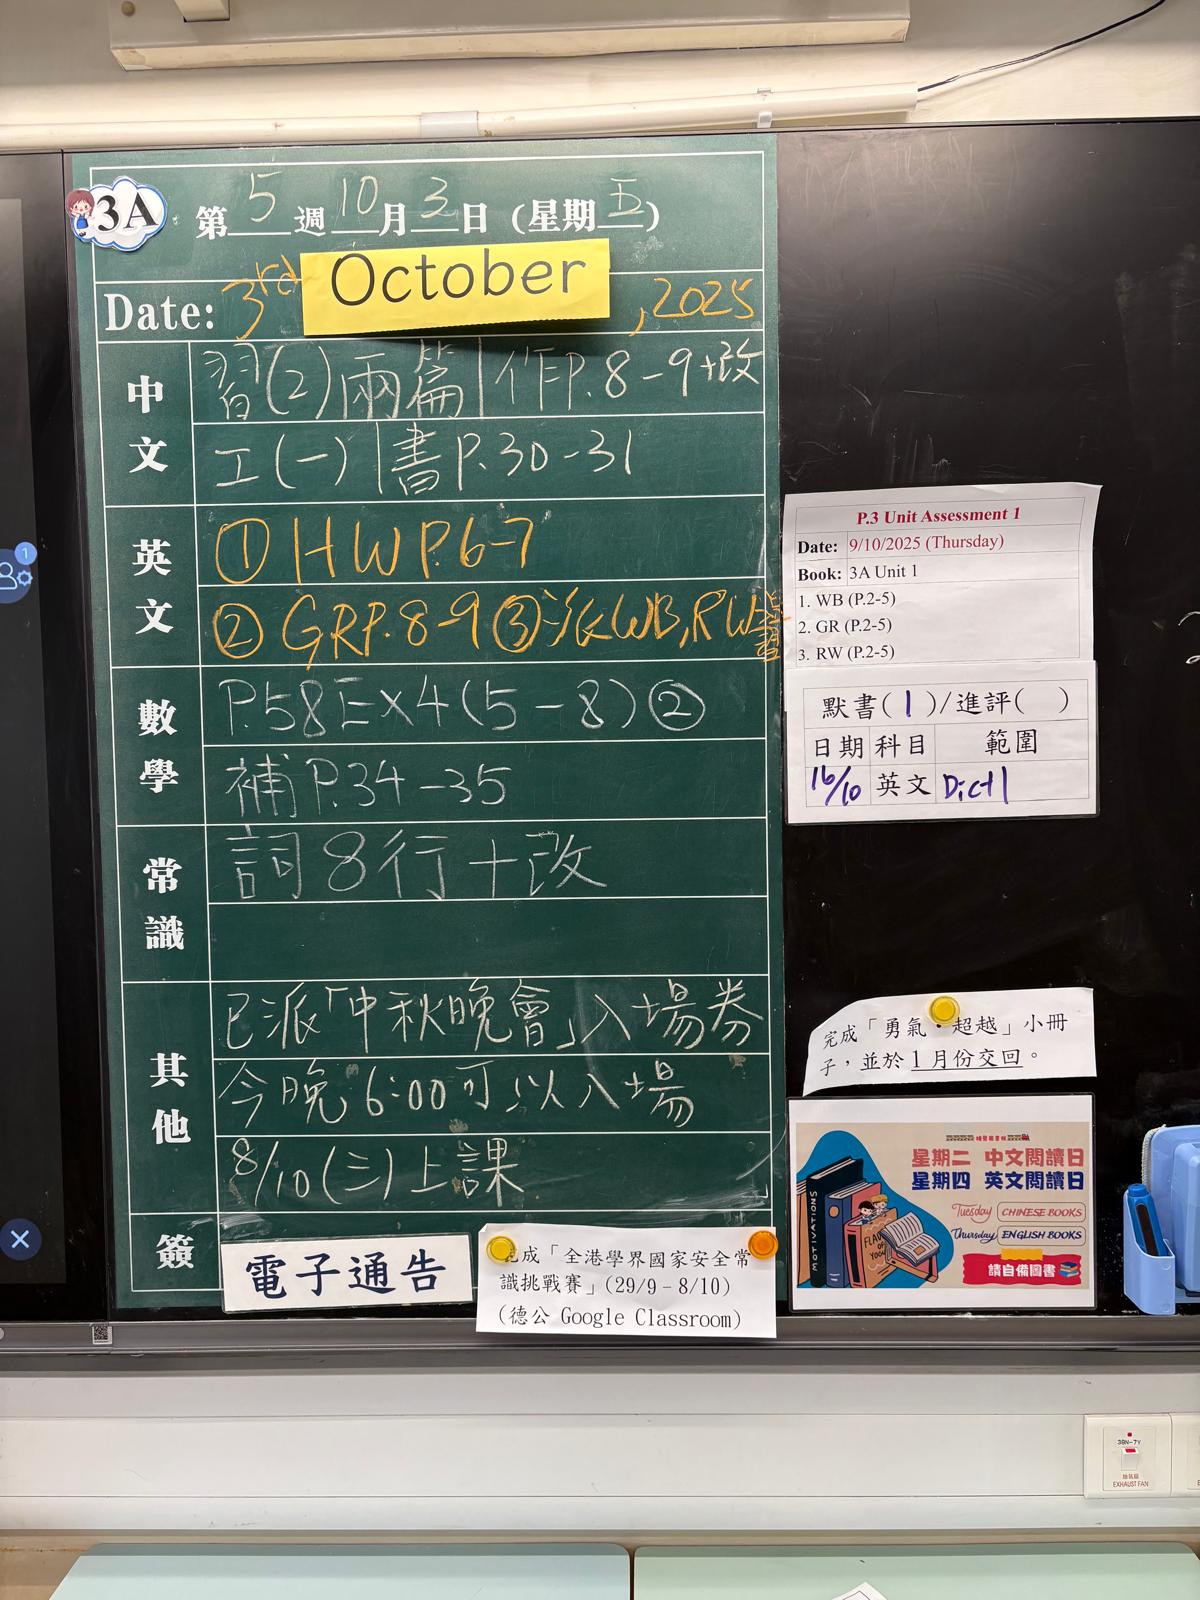 3A
第 5 週 10 月 3 日 (星期 五)
Date: 3rd October, 2025
中文
習(2)兩篇|作P.8-9+改
工(一)|書P.30-31
英文
① HW P.6-7
② GR P.8-9 ③派WB, RW
數學
P.58 Ex4(5-8)②
補P.34-35
常識
詞8行+改
其他
已派「中秋晚會」入場券
今晚6:00可以入場
8/10(三)上課
簽
電子通告
完成「全港學界國家安全常
識挑戰賽」(29/9 - 8/10)
(德公 Google Classroom)
P.3 Unit Assessment 1
Date: 9/10/2025 (Thursday)
Book: 3A Unit 1
1. WB (P.2-5)
2. GR (P.2-5)
3. RW (P.2-5)
默書(1)/進評( )
日期 科目 範圍
16/10 英文 Dict 1
完成「勇氣・超越」小冊
子，並於 1 月份交回。
星期二 中文閱讀日
星期四 英文閱讀日
Tuesday CHINESE BOOKS
Thursday ENGLISH BOOKS
請自備圖書
MOTIVATIONS
1
EXHAUST FAN